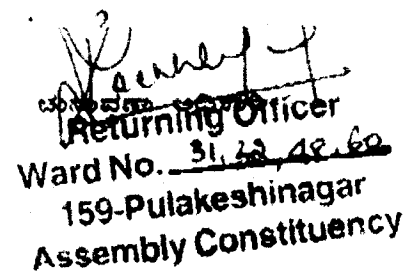 ಚುನಾವಣಾ ಅಧಿಕಾರಿ
Returning Officer
Ward No. 31, 32, 48, 60
159-Pulakeshinagar
Assembly Constituency